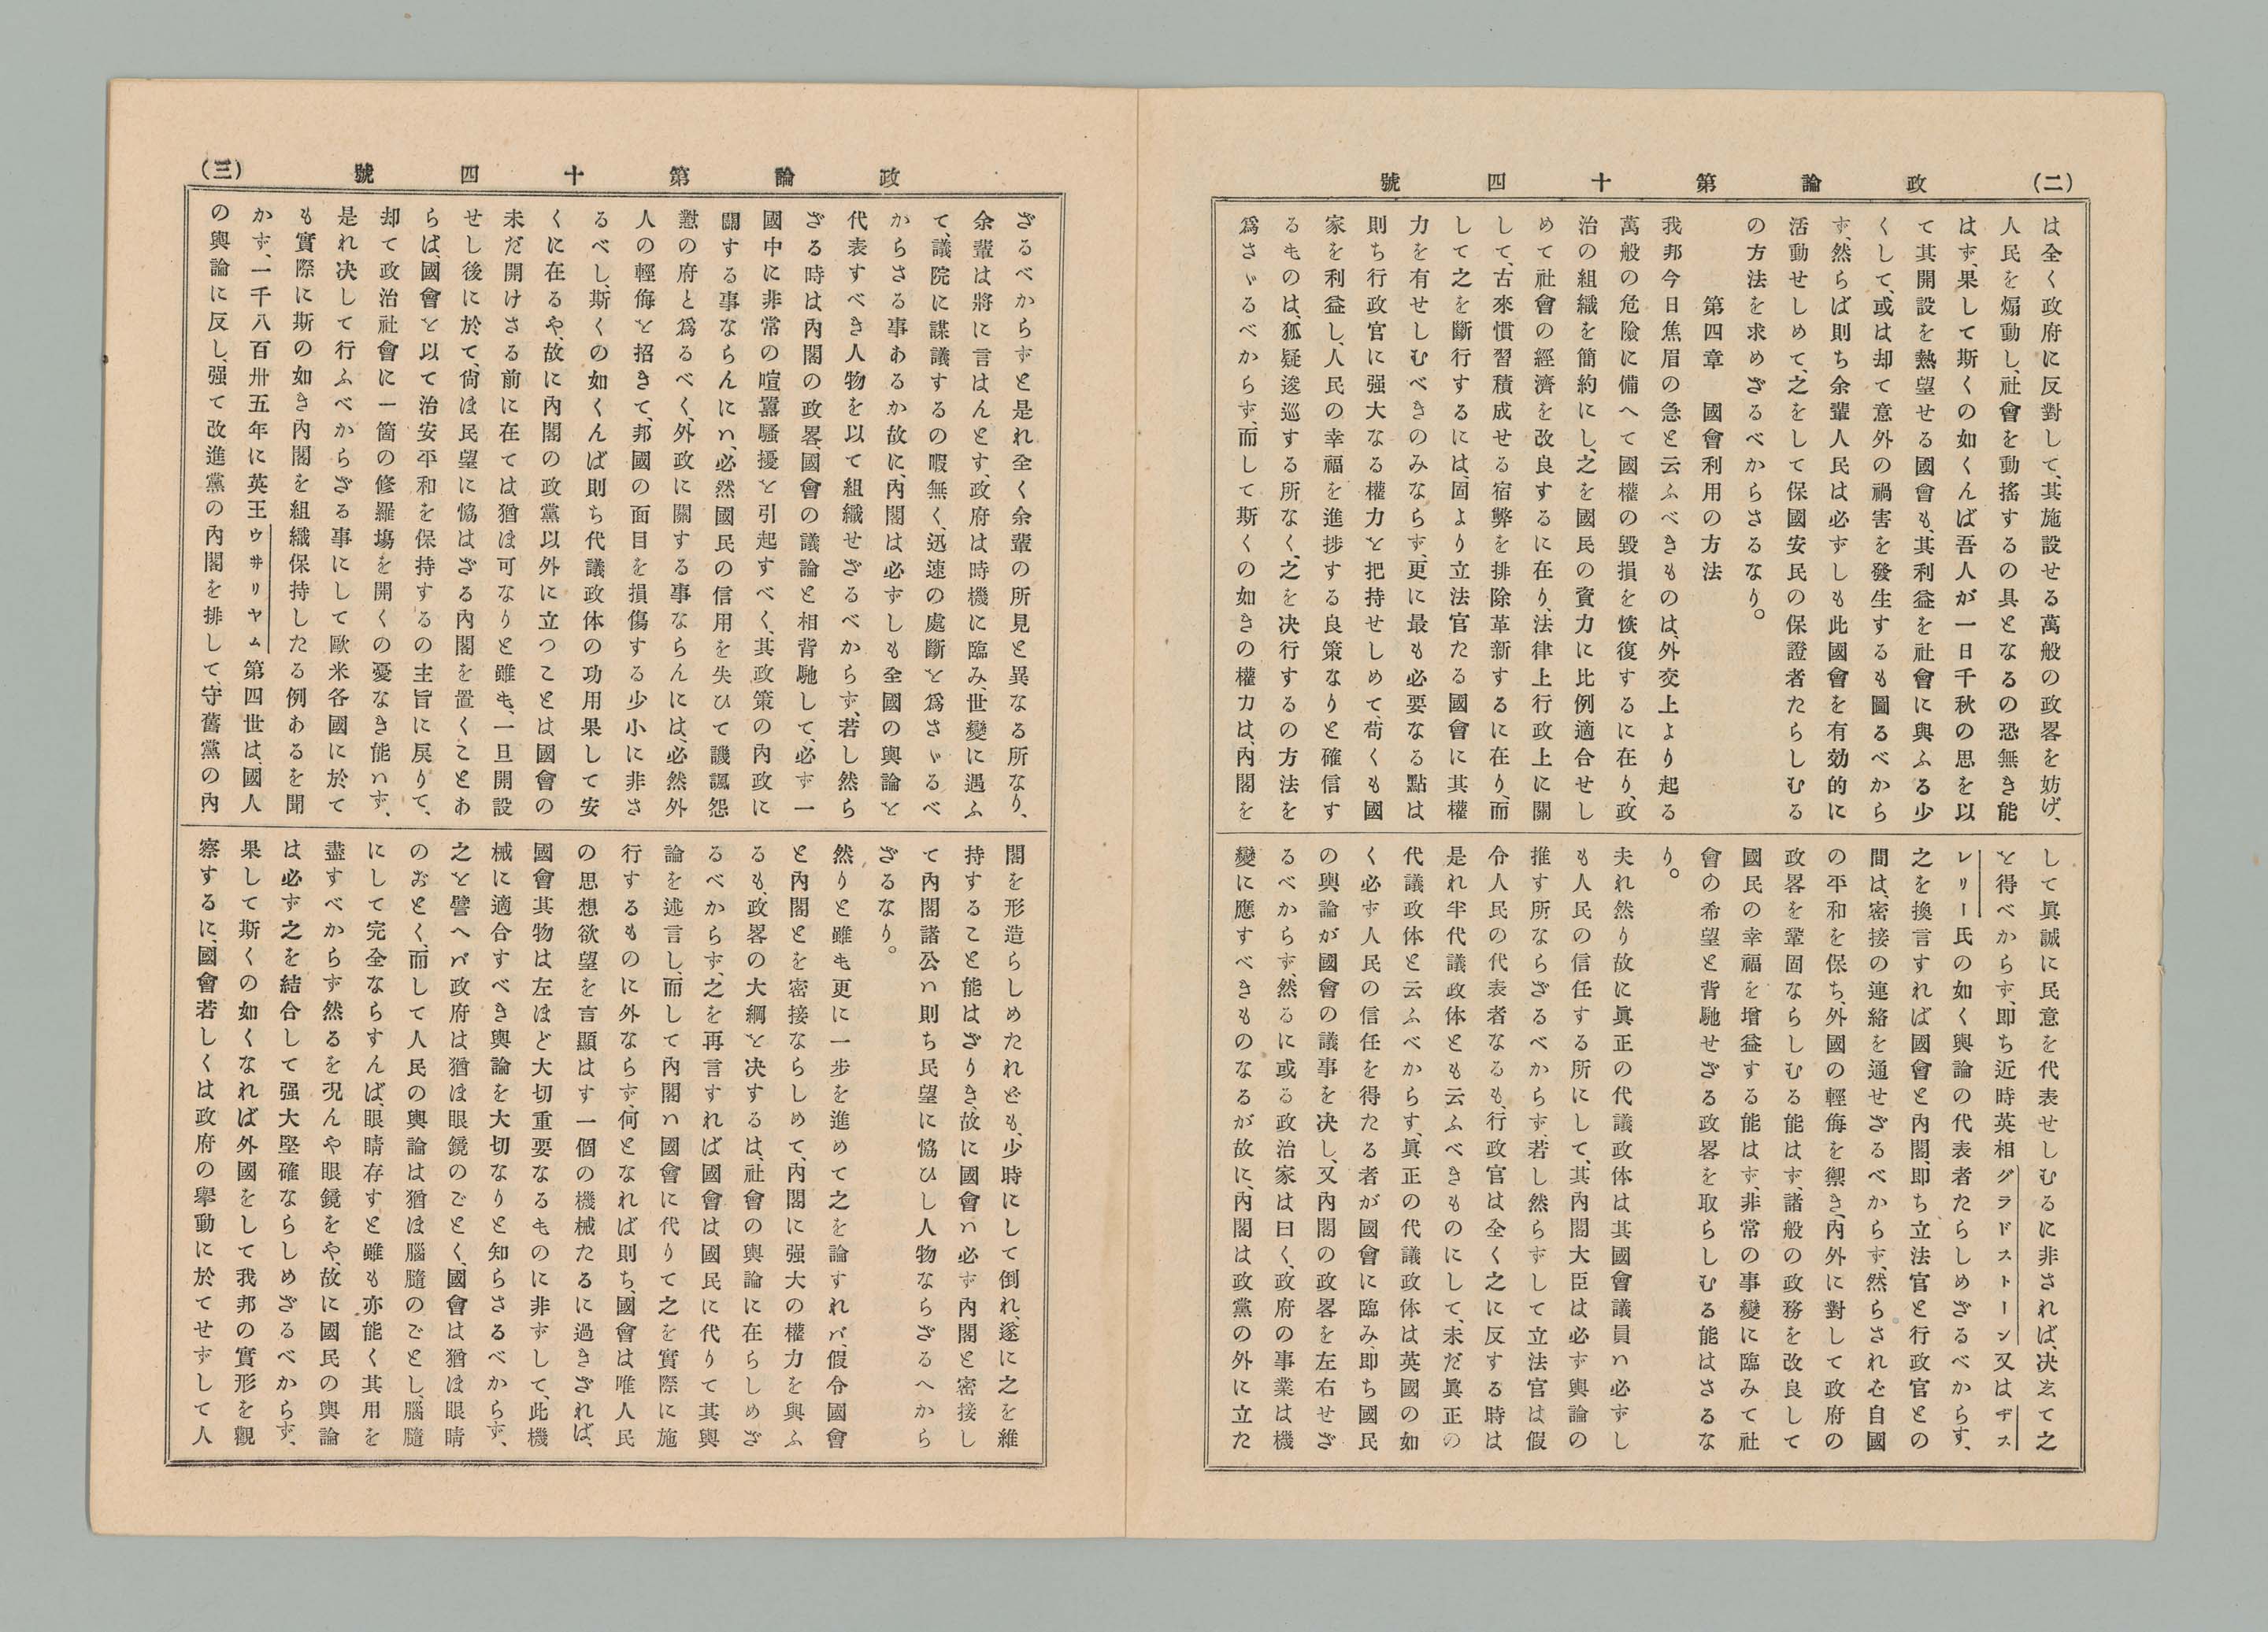 (二)　政論第十四號
は全く政府に反對して、其施設せる萬般の政畧を妨げ、
人民を煽動し、社會を動搖するの具となるの恐無き能
はず、果して斯くの如くんば吾人が一日千秋の思を以
て其開設を熱望せる國會も、其利益を社會に與ふる少
くして、或は却て意外の禍害を發生するも圖るべから
ず、然らば則ち余輩人民は必ずしも此國會を有効的に
活動せしめて、之をして保國安民の保證者たらしむる
の方法を求めざるべからさるなり。
第四章　國會利用の方法
我邦今日焦眉の急と云ふべきものは、外交上より起る
萬般の危險に備へて國權の毀損を恢復するに在り、政
治の組織を簡約にし、之を國民の資力に比例適合せし
めて社會の經濟を改良するに在り、法律上行政上に關
して、古來慣習積成せる宿弊を排除革新するに在り、而
して之を斷行するには、固より立法官たる國會に其權
力を有せしむべきのみならず、更に最も必要なる點は
則ち行政官に强大なる權力を把持せしめて、苟くも國
家を利益し、人民の幸福を進捗する良策なりと確信す
るものは、狐疑逡巡する所なく、之を决行するの方法を
爲さゞるべからず、而して斯くの如きの權力は、內閣を
して眞誠に民意を代表せしむるに非されば、决玄て之
を得べからず、即ち近時英相グラドストーン又はヂス
レリー氏の如く輿論の代表者たらしめざるべからず、
之を換言すれば國會と內閣、即ち立法官と行政官との
間は、密接の連絡を通せざるべからず、然らされを自國
の平和を保ち、外國の輕侮を禦き、內外に對して政府の
政畧を鞏固ならしむる能はず、諸般の政務を改良して
國民の幸福を增益する能はず、非常の事變に臨みて社
會の希望と背馳せざる政畧を取らしむる能はさるな
り。
夫れ然り故に眞正の代議政体は其國會議員ハ必ずし
も人民の信任する所にして、其內閣大臣は必ず輿論の
推す所ならざるべからず、若し然らずして立法官は假
令人民の代表者なるも、行政官は全く之に反する時は
是れ半代議政体とも云ふべきものにして、未だ眞正の
代議政体と云ふべからす、眞正の代議政体は英國の如
く必ず人民の信任を得たる者が國會に臨み、即ち國民
の輿論が國會の議事を决し、又內閣の政畧を左右せざ
るべからず、然るに或る政治家は曰く、政府の事業は機
變に應すべきものなるが故に、內閣は政黨の外に立た
(三)　政論第十四號
ざるべからずと是れ全く余輩の所見と異なる所なり、
余輩は將に言はんとす、政府は時機に臨み、世變に遇ふ
て、議院に謀議するの暇無く、迅速の處斷を爲さゞるべ
からさる事あるか故に、內閣は必ずしも全國の輿論を
代表すべき人物を以て組織せざるべからず、若し然ら
ざる時は內閣の政畧、國會の議論と相背馳して、必ず一
國中に非常の喧囂騷擾を引起すべく、其政策の內政に
關する事ならんにハ、必然國民の信用を失ひて譏諷怨
懟の府と爲るべく、外政に關する事ならんには、必然外
人の輕侮を招きて、邦國の面目を損傷する少小に非さ
るべし、斯くの如くんば則ち代議政体の功用果して安
くに在るや、故に內閣の政黨以外に立つことは國會の
未だ開けさる前に在ては猶ほ可なりと雖も、一旦開設
せし後に於て、尙ほ民望に恊はざる內閣を置くことあ
らば、國會を以て治安平和を保持するの主旨に戾りて、
却て政治社會に一箇の修羅塲を開くの憂なき能ハず、
是れ决して行ふべからざる事にして歐米各國に於て
も實際に斯の如き內閣を組織保持したる例あるを聞
かず、一千八百卅五年に英王ウ井リヤム第四世は、國人
の輿論に反し、强て改進黨の內閣を排して、守舊黨の內
閣を形造らしめたれども、少時にして倒れ、遂に之を維
持すること能はざりき、故に國會ハ必ず內閣と密接し
て內閣諸公ハ則ち民望に恊ひし人物ならざるへから
ざるなり。
然りと雖も更に一步を進めて之を論すれバ、假令國會
と內閣とを密接ならしめて、內閣に强大の權力を與ふ
るも、政畧の大綱を决するは、社會の輿論に在らしめざ
るべからず、之を再言すれば國會は國民に代りて其輿
論を述言し、而して內閣ハ國會に代りて之を實際に施
行するものに外ならず、何となれば則ち、國會は唯人民
の思想欲望を言顯はす一個の機械たるに過きざれば、
國會其物は左ほど大切重要なるものに非ずして、此機
械に適合すべき輿論を大切なりと知らさるべからず、
之を譬へバ政府は猶ほ眼鏡のごとく、國會は猶ほ眼睛
のおとく、而して人民の輿論は猶ほ腦膸のごとし、腦膸
にして完全ならすんば、眼睛存すと雖も亦能く其用を
盡すべからず然るを况んや眼鏡をや、故に國民の輿論
は必ず之を結合して强大堅確ならしめざるべからず、
果して斯くの如くなれば外國をして我邦の實形を觀
察するに、國會若しくは政府の擧動に於てせずして人